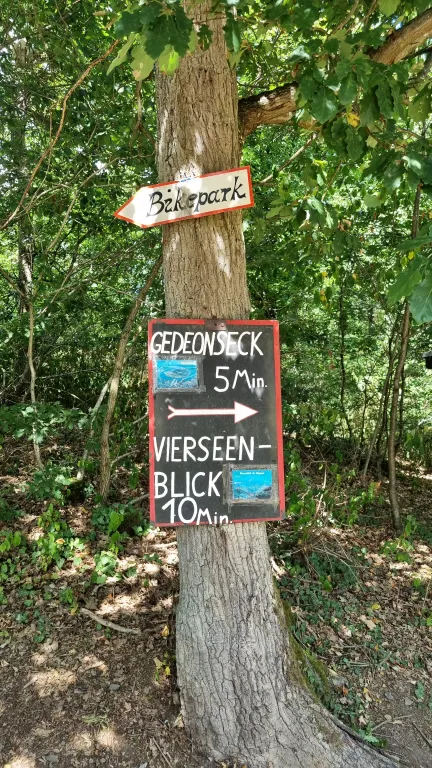 Bikepark
GEDEONSECK
5 Min.
VIERSEEN-
BLICK
10 Min.